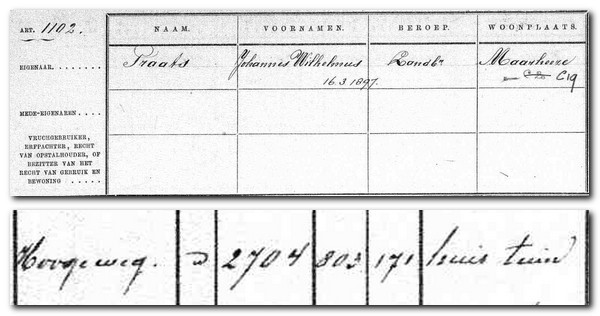 ART. 1102. NAAM. VOORNAMEN. BEROEP. WOONPLAATS.
EIGENAAR. . . . . . . . Traats Johannes Wilhelmus Landbr Maarheeze
16.3.1897. C19
MEDE-EIGENAREN . . . .
VRUCHTGEBRUIKER,
ERFPACHTER, RECHT
VAN OPSTALHOUDER, OF
BEZITTER VAN HET
RECHT VAN GEBRUIK EN
BEWONING . . . . .
Hoogeweg. D 2704 803 171 huis tuin